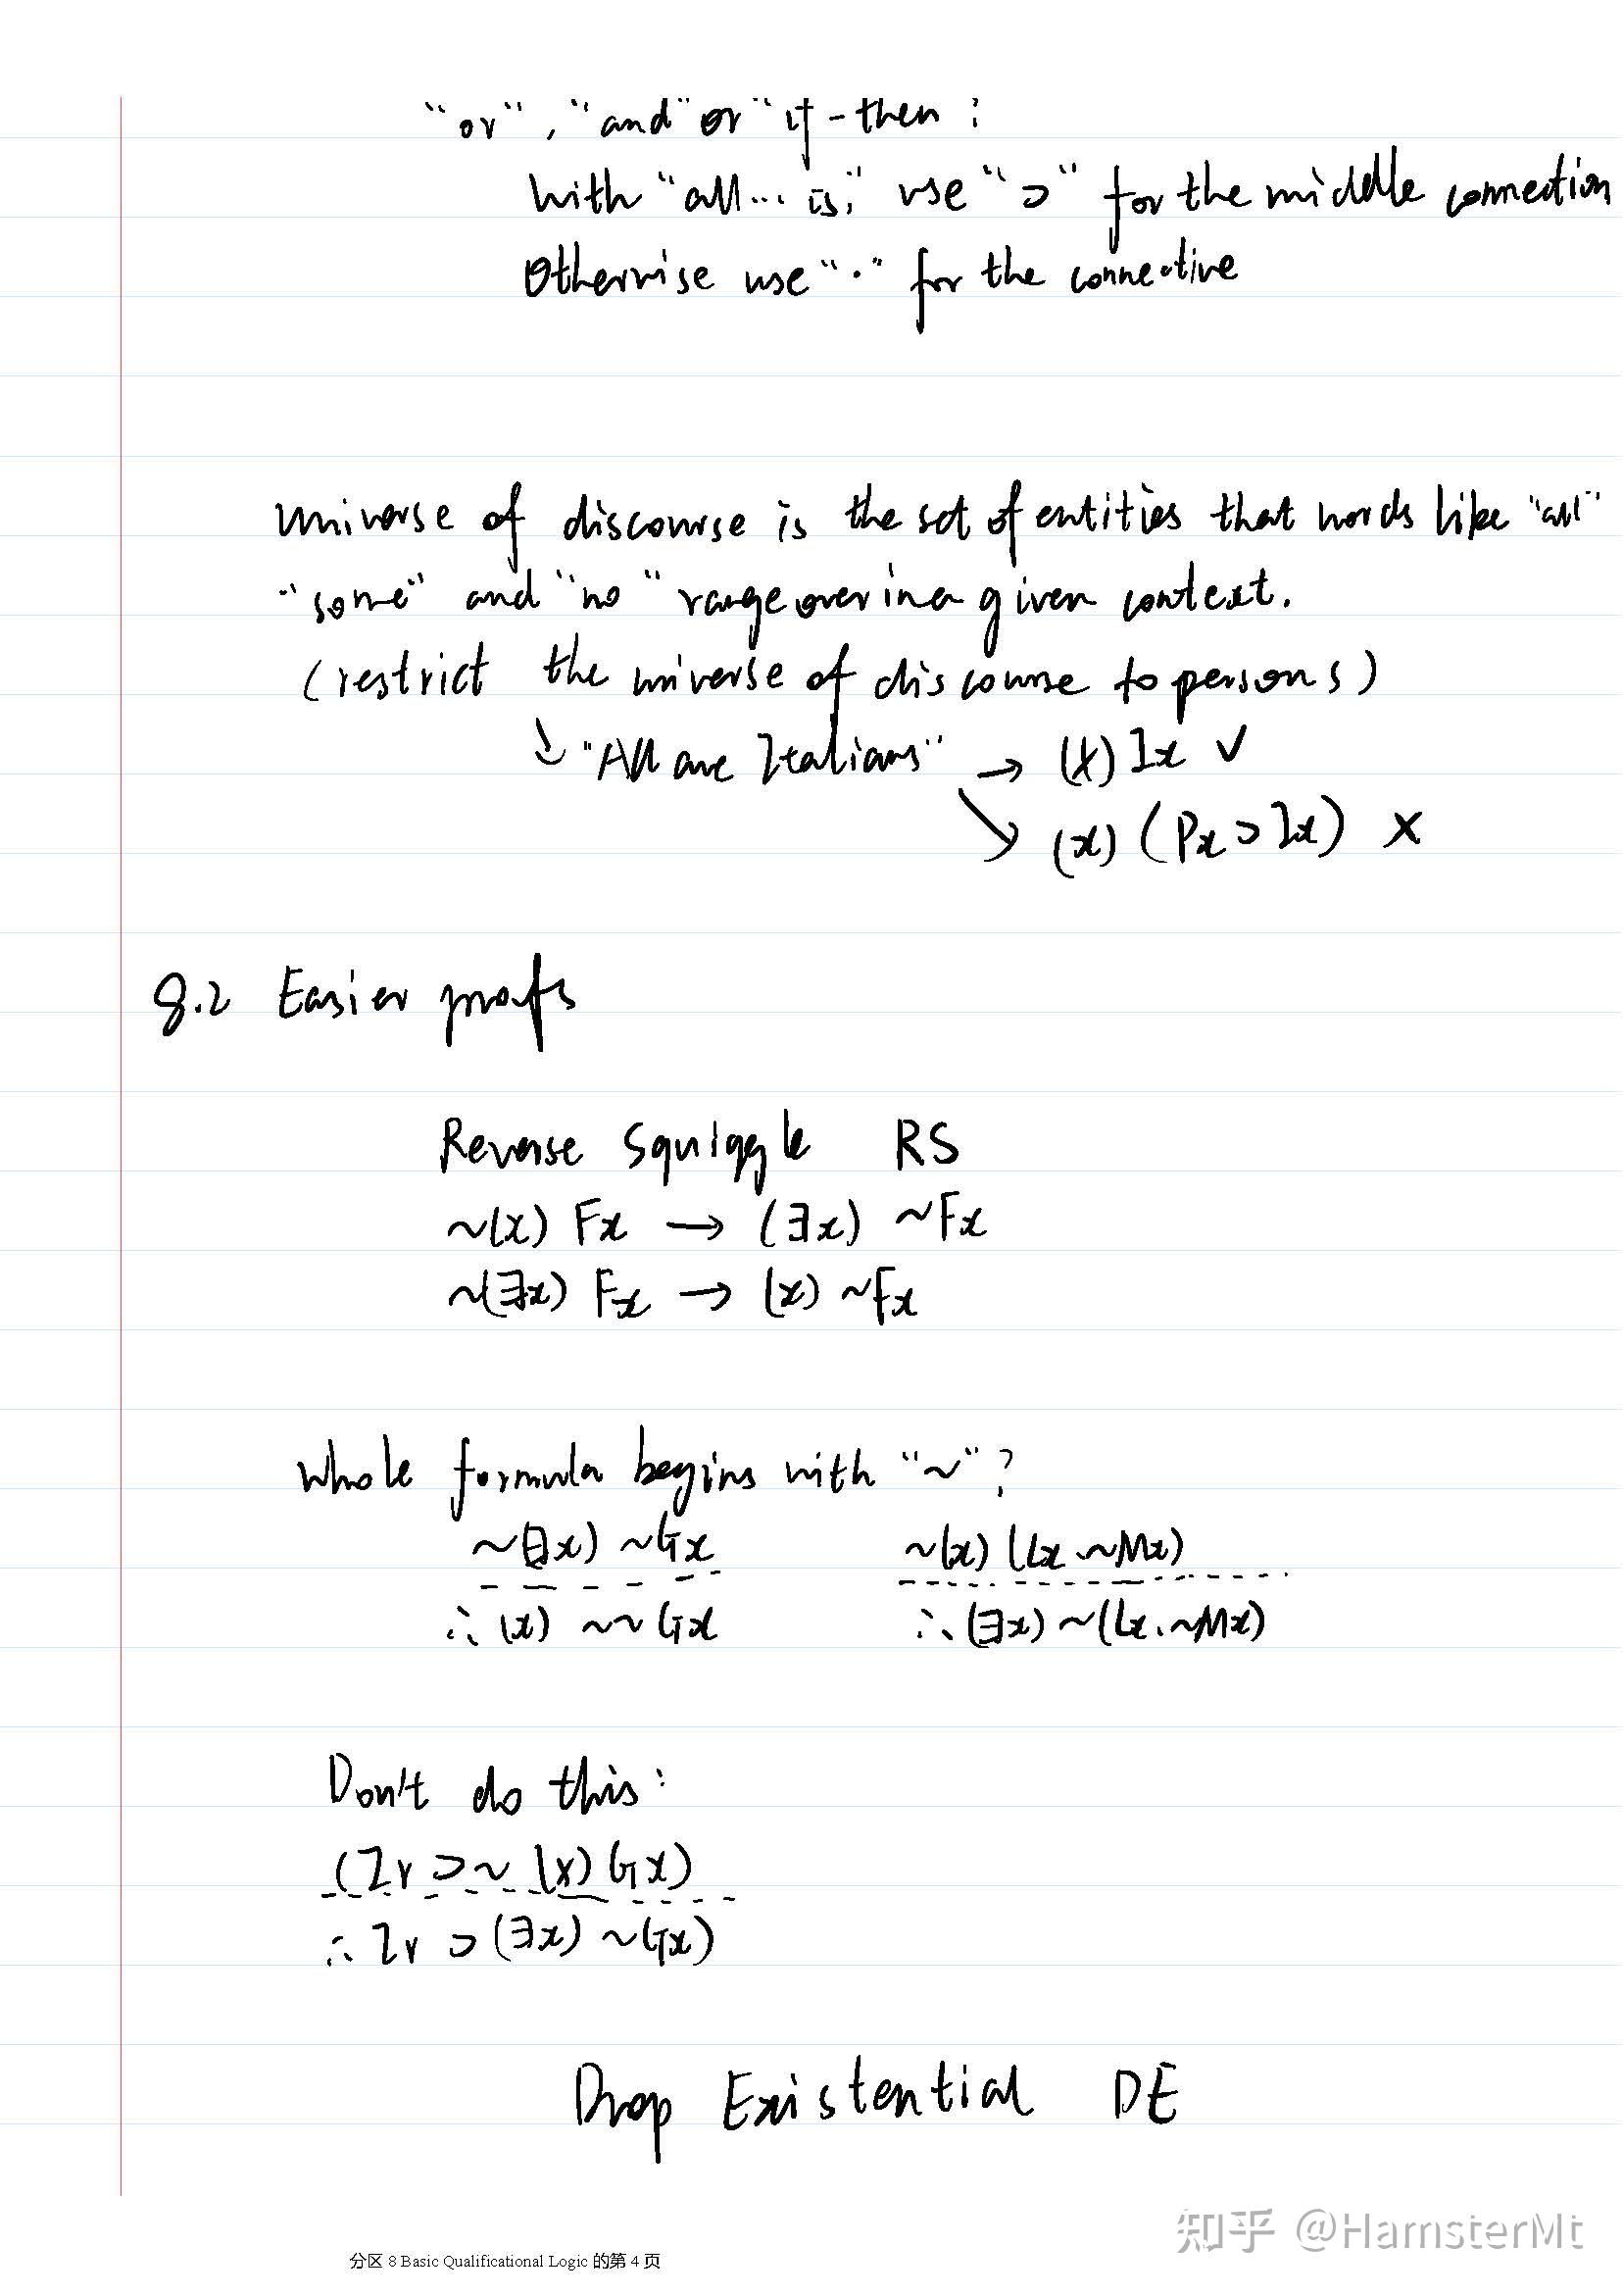 "or", "and" or "if-then:
with "all... is," use "⊃" for the middle connection
Otherwise use "·" for the connective
universe of discourse is the set of entities that words like "all"
"some" and "no" range over in a given context.
(restrict the universe of discourse to persons)
↳ "All are Italians" → (x) Ix ✓
↘ (x) (Px ⊃ Ix) ×
8.2 Easier proofs
Reverse Squiggle RS
~(x) Fx → (∃x) ~Fx
~(∃x) Fx → (x) ~Fx
Whole formula begins with "~"?
~(∃x) ~Gx ~(x) (Lx·~Mx)
∴ (x) ~~Gx ∴ (∃x) ~(Lx·~Mx)
Don't do this:
(Ir ⊃ ~(x) Gx)
∴ Ir ⊃ (∃x) ~Gx)
Drop Existential DE
知乎 @HamsterMt
分区 8 Basic Qualificational Logic 的第 4 页